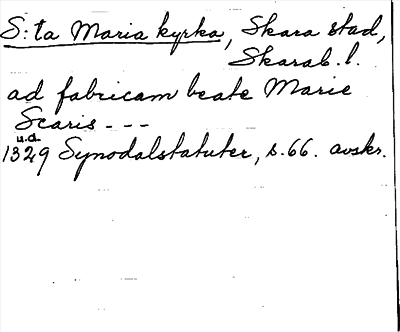 S:ta Maria kyrka, Skara stad,
Skarab. l.
ad fabricam beate Marie
Scaris - - -
u.d.
1329 Synodalstatuter, s. 66. avskr.